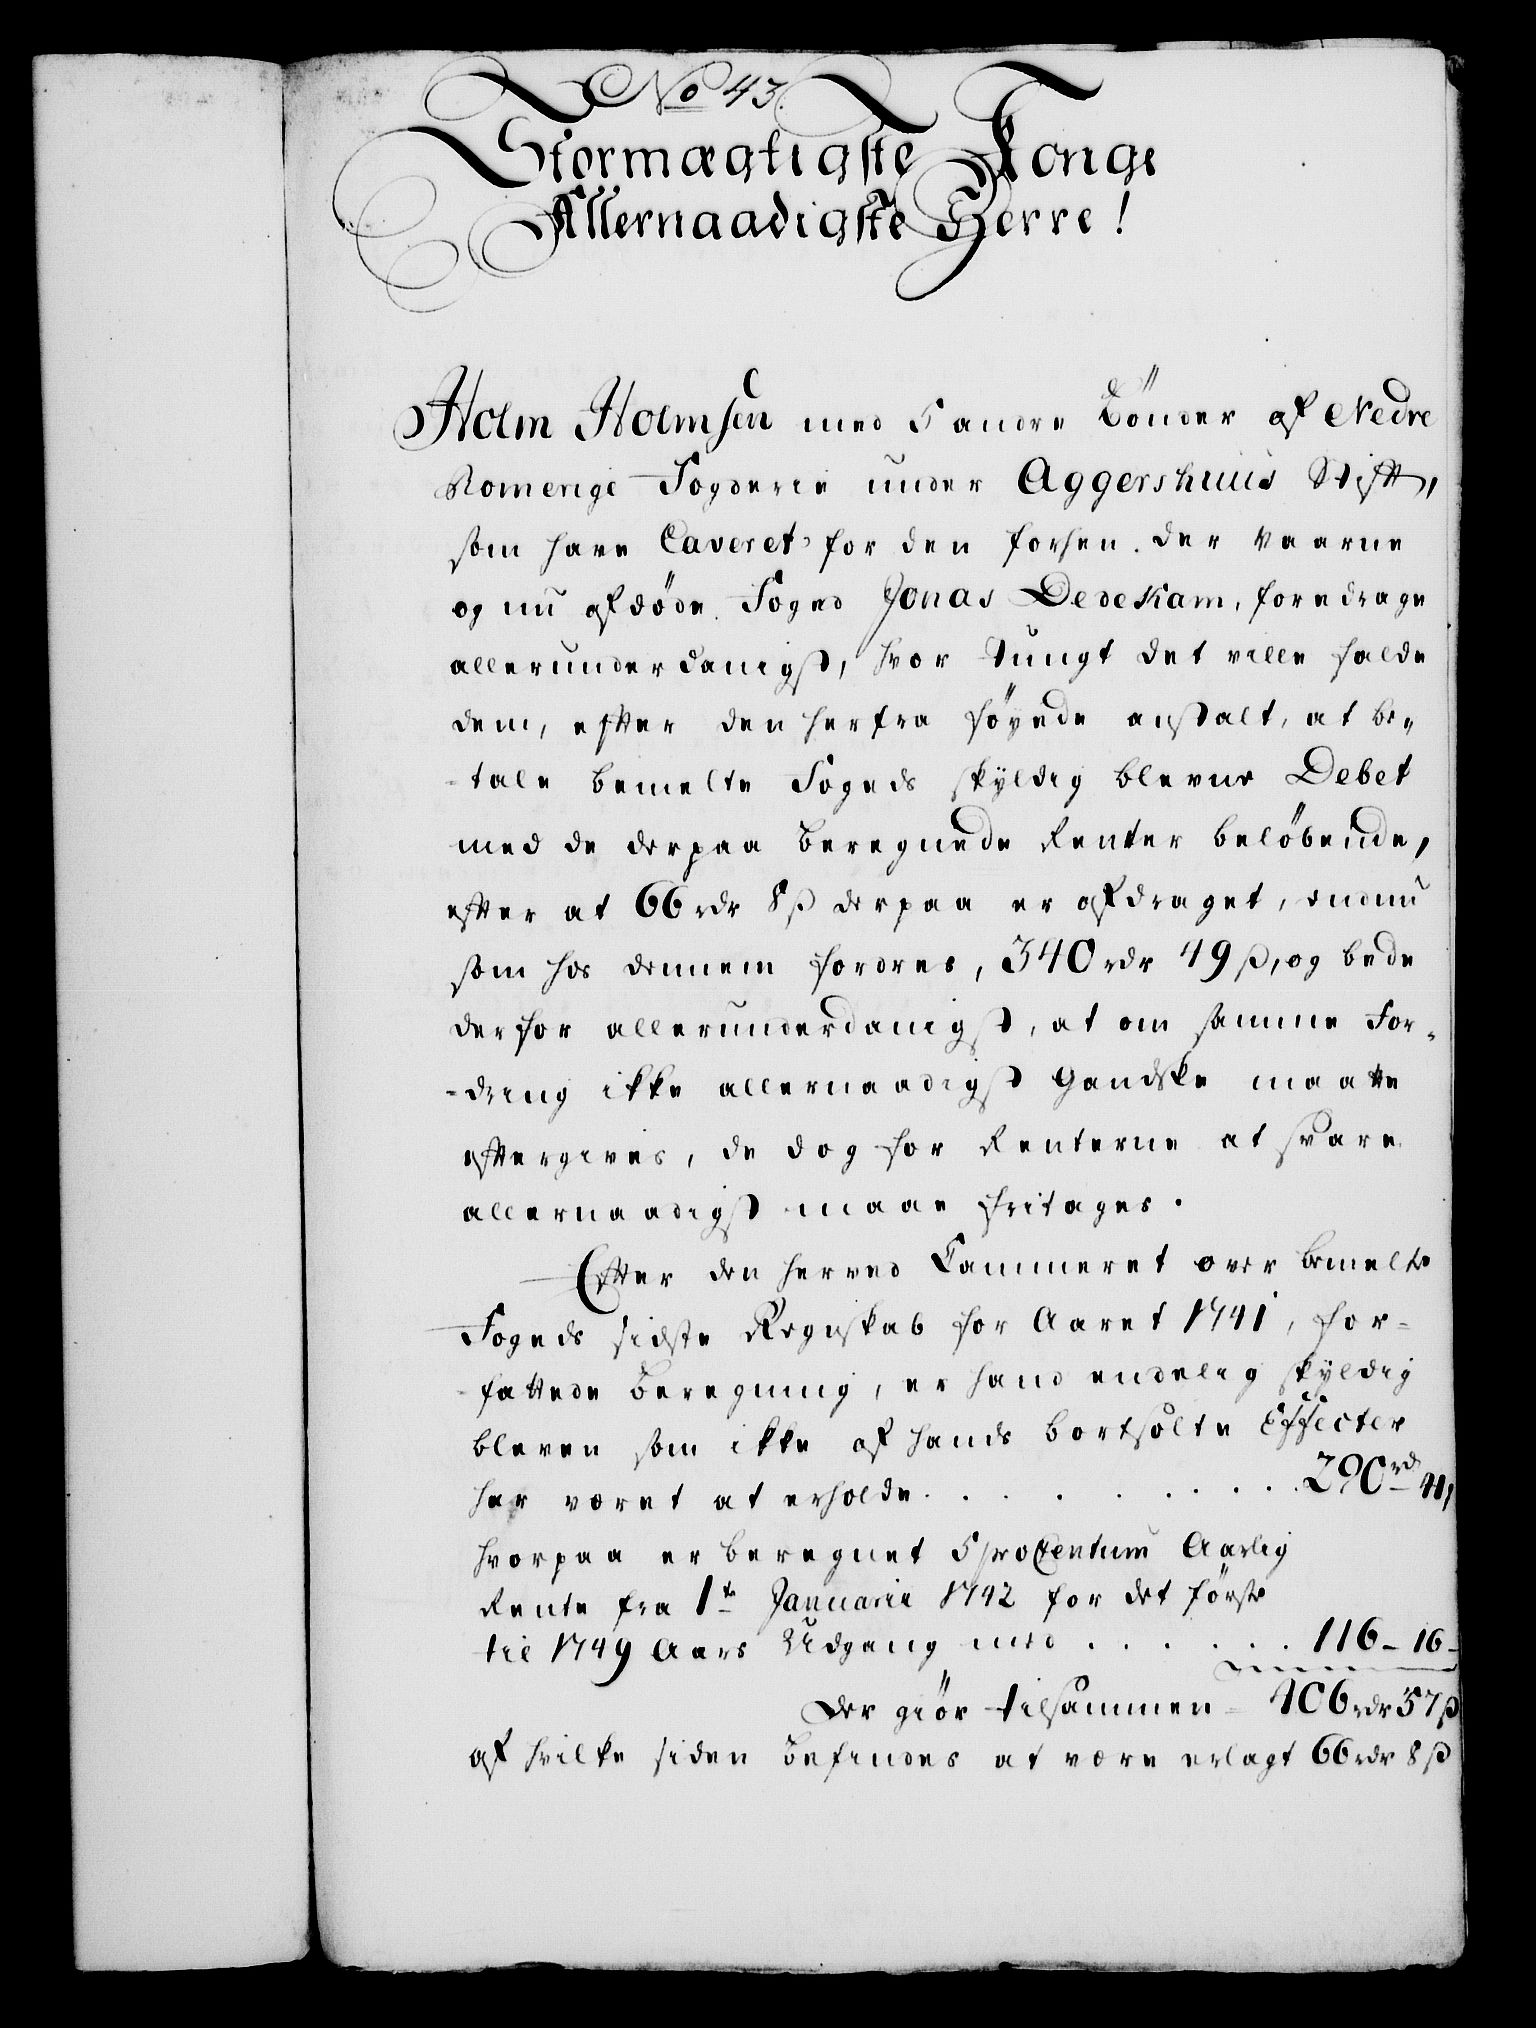 No 43.
Stormægtigste Konge
Allernaadigste Herre!
Holm Holmsen med 5 andre Bönder af Nedre
Romerige Fogderie under Aggershuus Stift,
som have Caveret for den forhen der værne
og nu afdöde Foged Jonas Dedekam, foredrage
allerunderdanigst, hvor tungt det ville falde
dem, efter den herfra föyede anstalt, at be-
-tale bemelte Fogeds skyldig blevne Debet
med de derpaa beregnede Renter belöbende,
efter at 66 rdr 8 ß derpaa er afdraget, endnu
som hos dennem fordres, 340 rdr 49 ß, og bede
derfor allerunderdanigst, at om samme For-
-dring ikke allernaadigst gandske maatte
eftergives, de dog for Renterne at svare
allernaadigst maae fritages.
Efter den herved Cammeret over bemelte
Fogeds sidste Regnskab for Aaret 1741, for-
-fattede Beregning, er hand endelig skyldig
bleven som ikke af hands bortsolte Effecter
har været at erholde . . . . . . . . . 290 rd 41,
hvorpaa er beregnet 5 proCentum Aarlig
Rente fra 1te Januarii 1742 for det förste
til 1749 Aars Udgang med . . . . . . 116 - 16 -
Der giör tilsammen - 406 rdr 57 ß
af hvilke siden befindes at være erlagt 66 rdr 8 ß